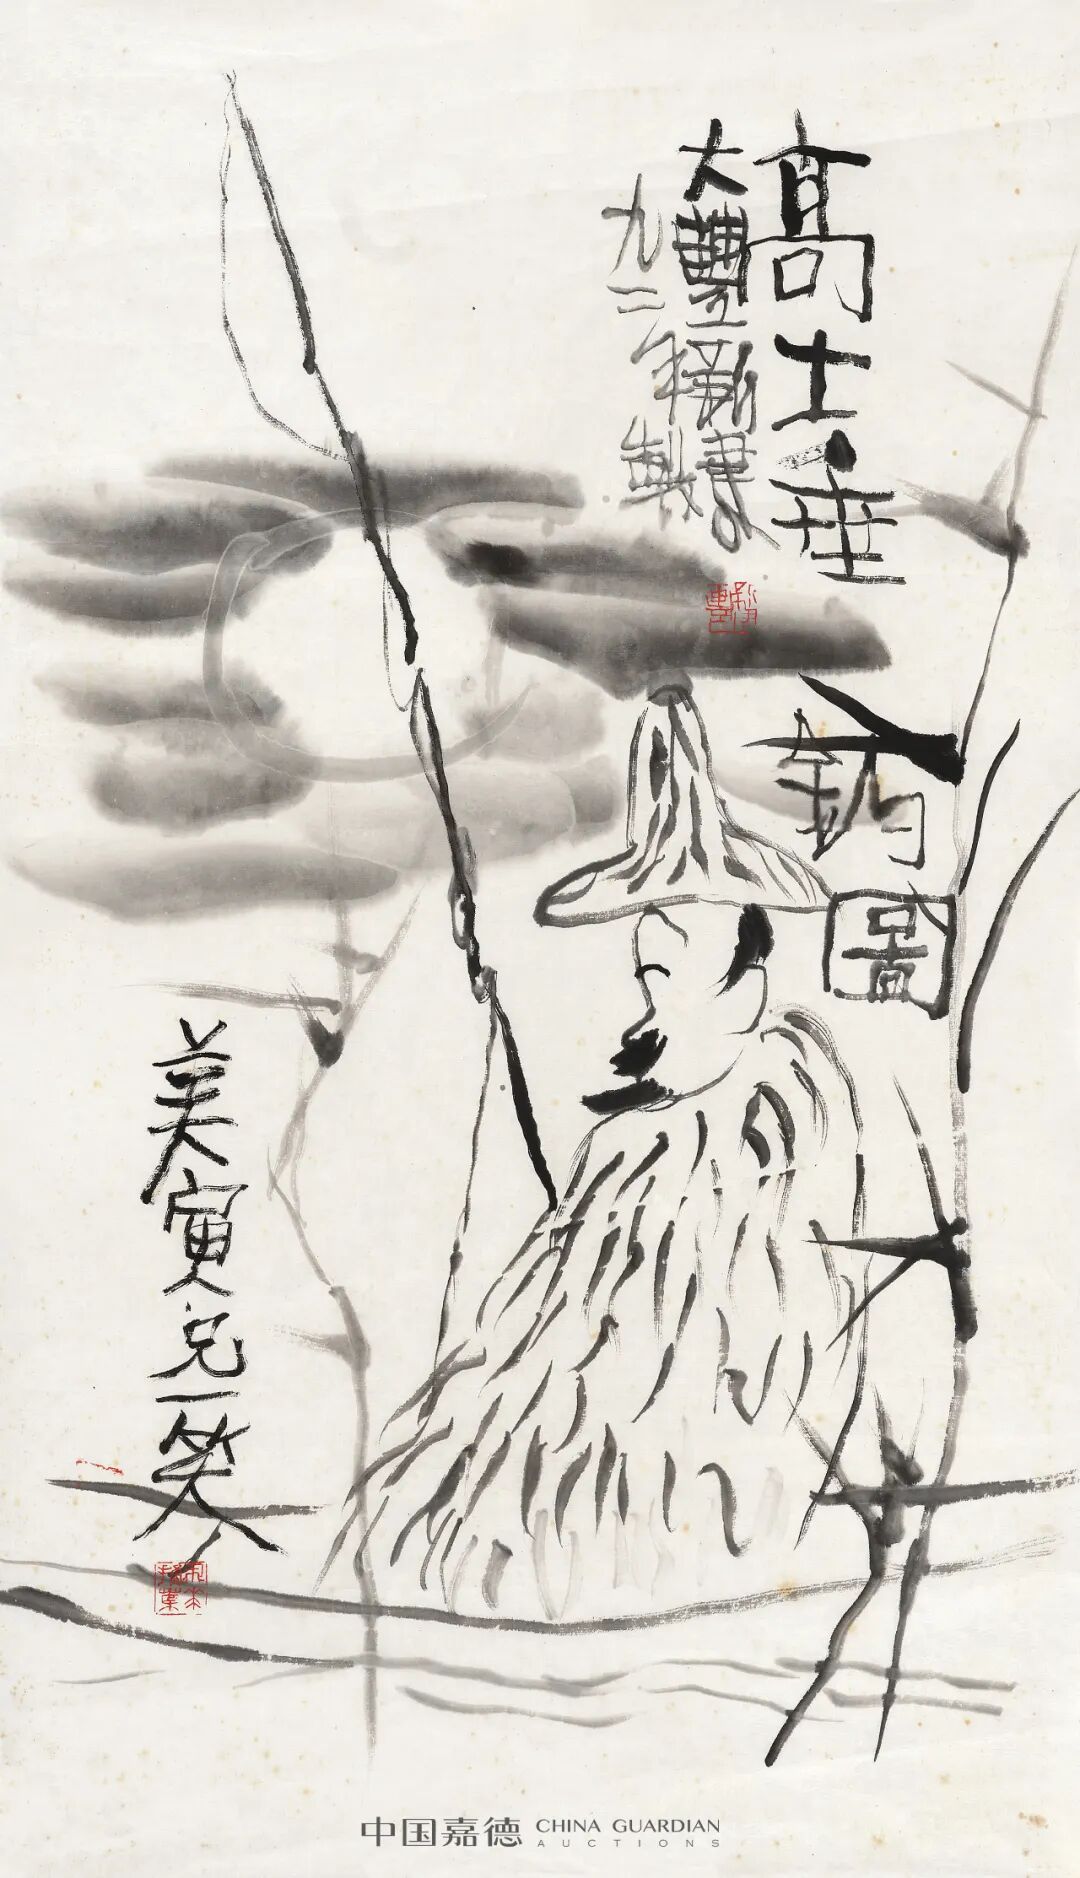 高士垂釣圖
大豐新建
九二年製
美寅兄一笑
中国嘉德
CHINA GUARDIAN
AUCTIONS